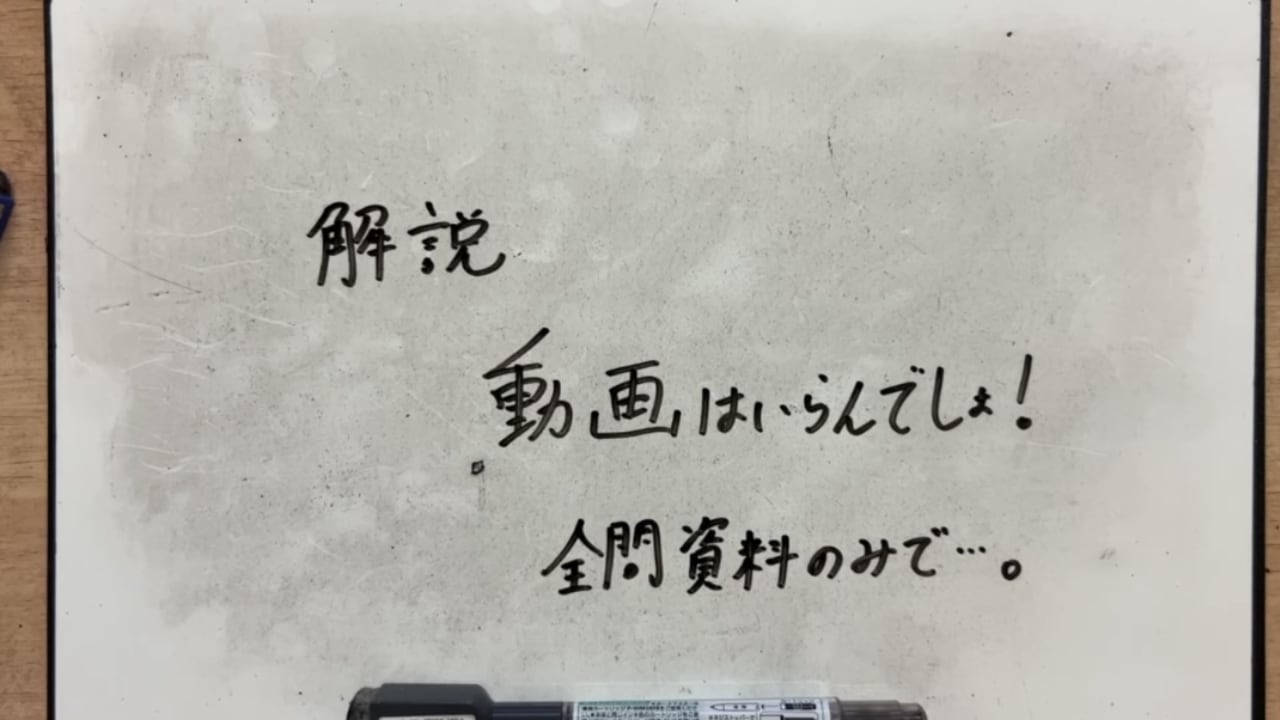 解説
動画はいらんでしょ!
全問資料のみで…。